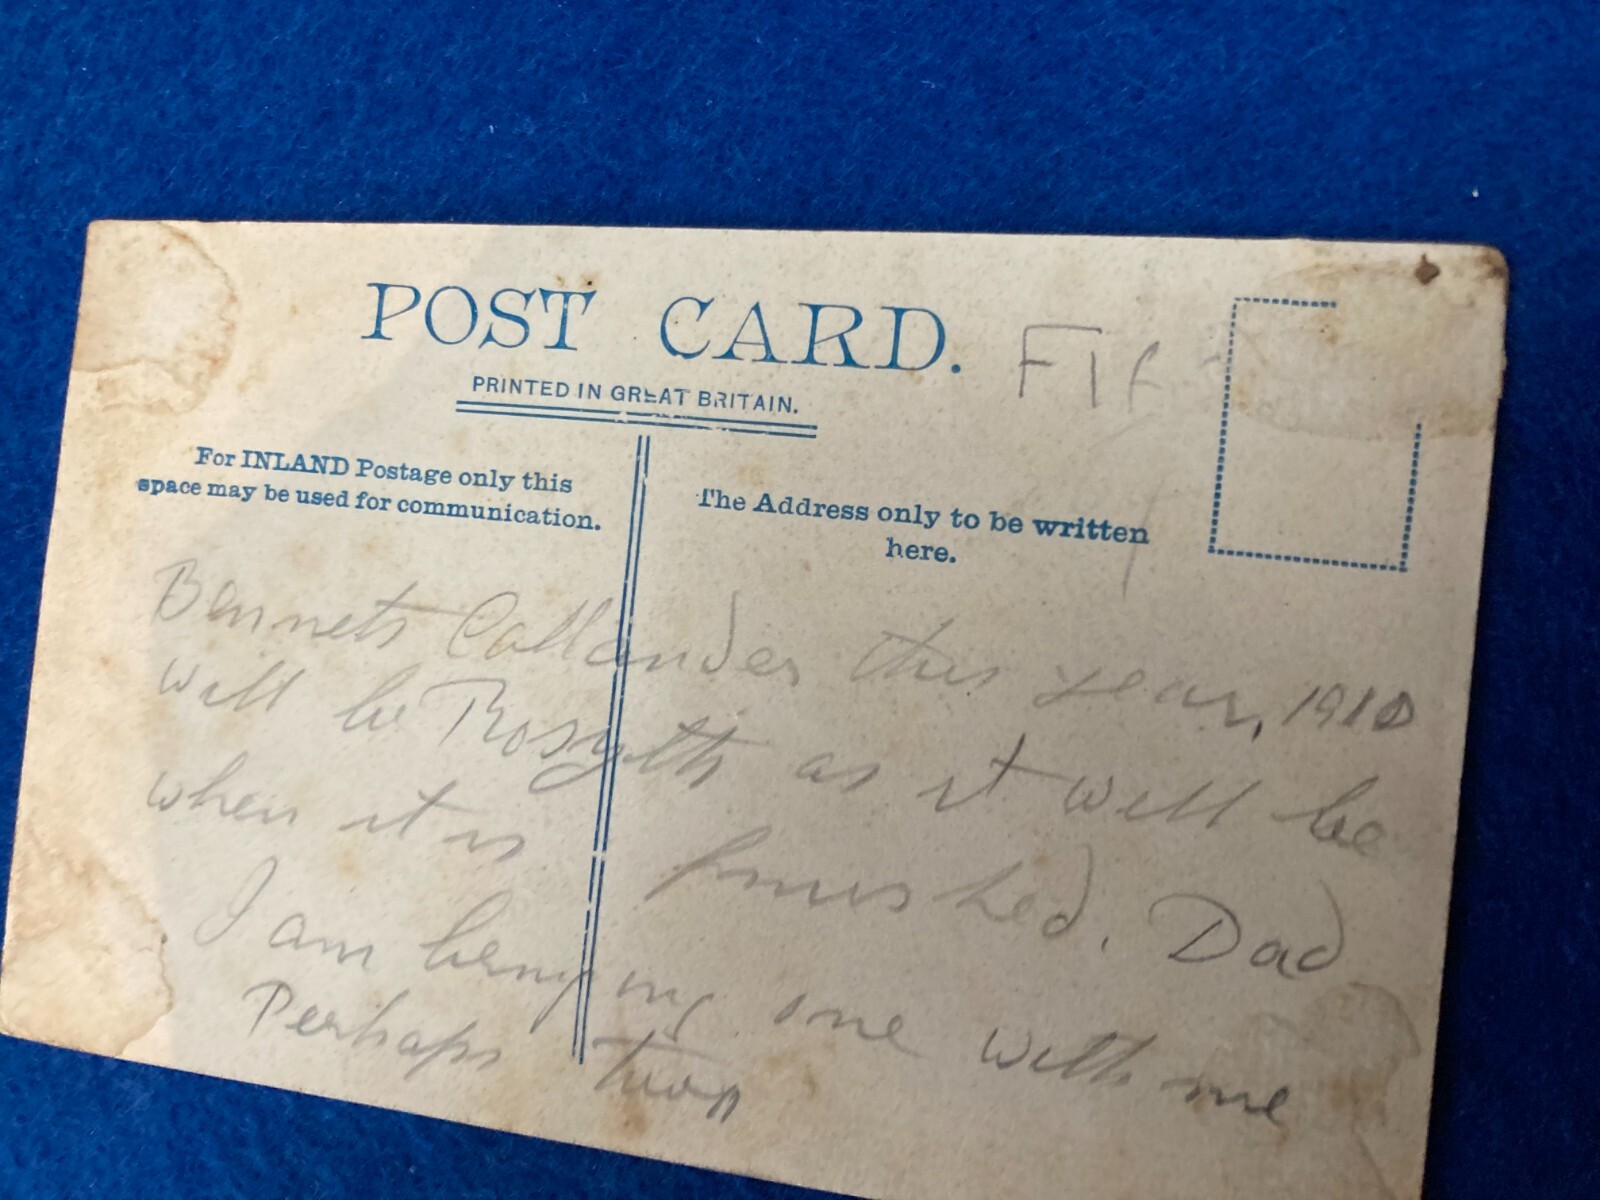 POST CARD.
FIF
PRINTED IN GREAT BRITAIN.
For INLAND Postage only this
space may be used for communication.
The Address only to be written
here.
Bennets Callander this year, 1910
will be Rosyth as it will be
when it is finished. Dad
I am bringing one with me
Perhaps two